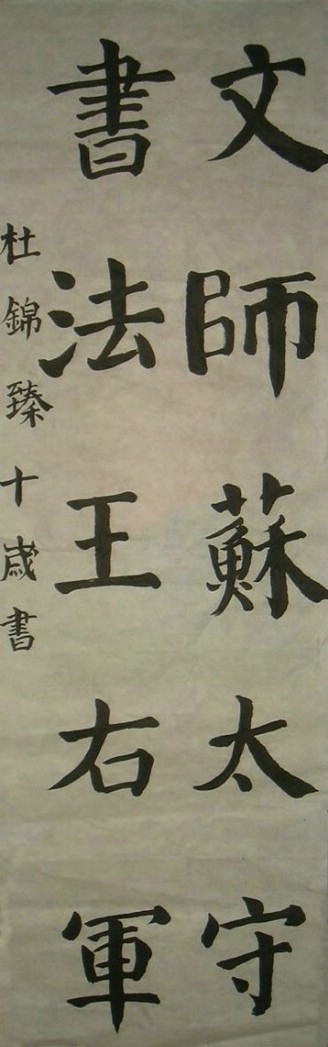 文師蘇太守
書法王右軍
杜錦臻十歲書